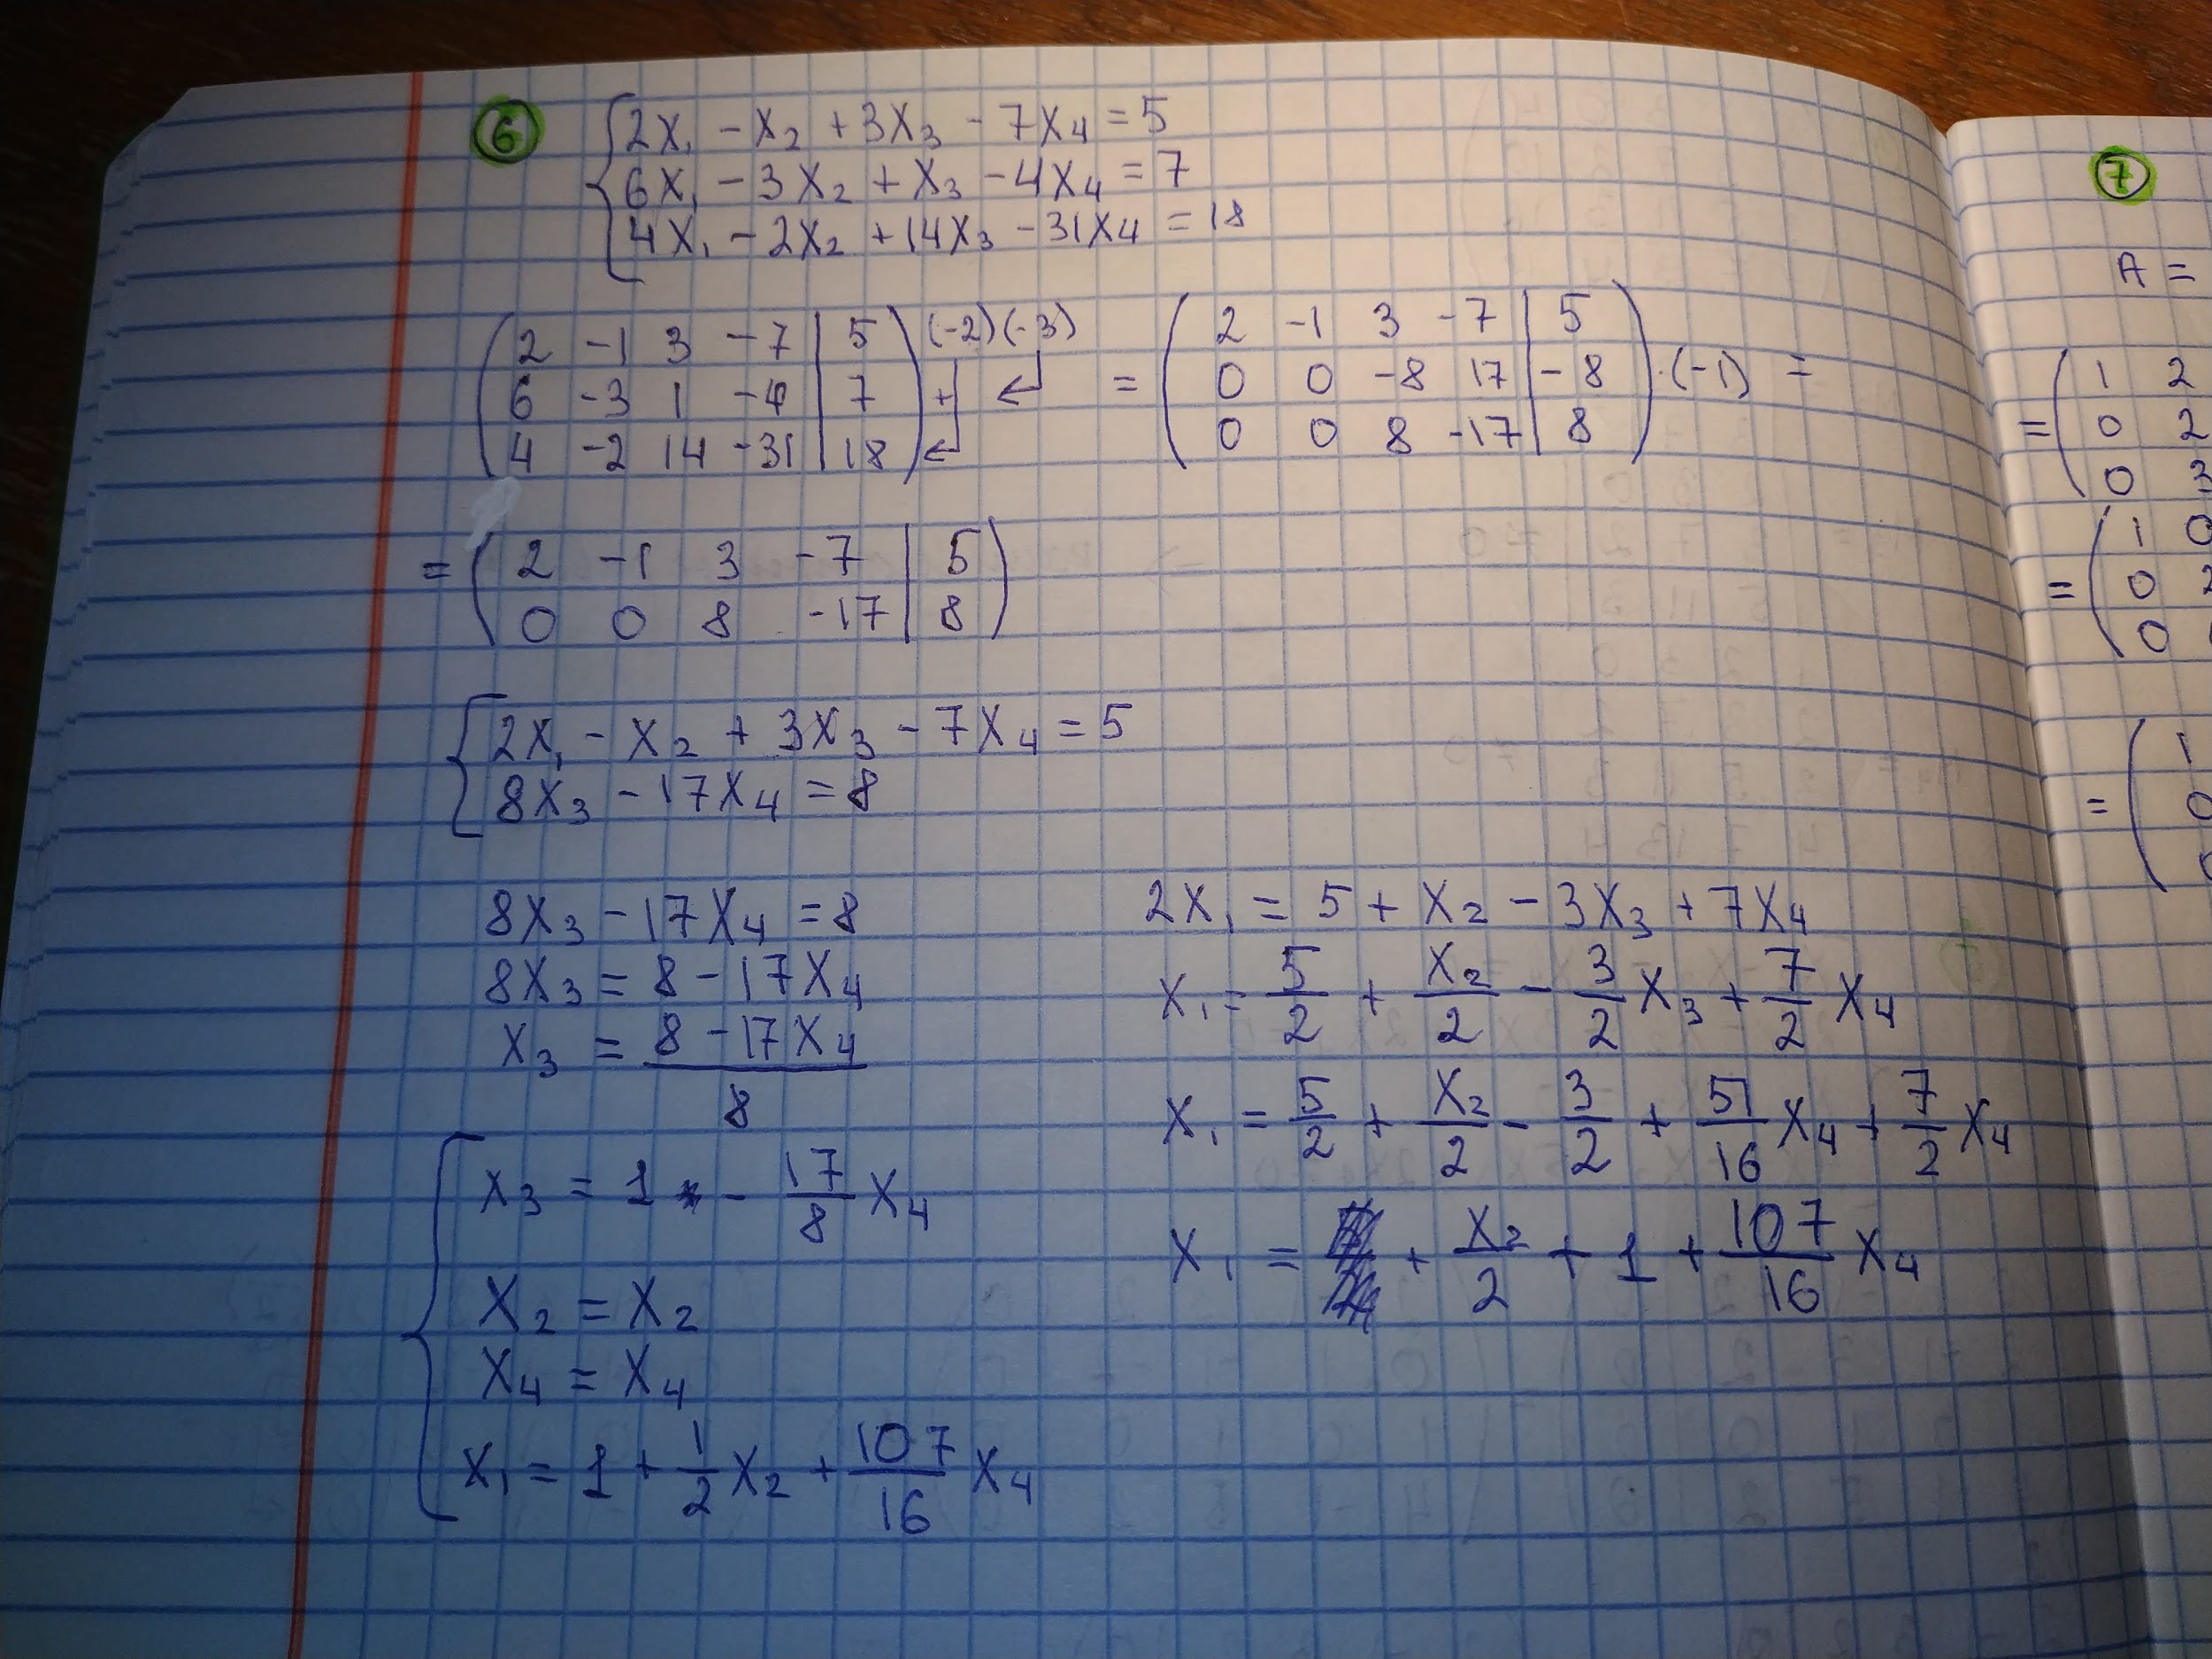 6
2x₁ - x₂ + 3x₃ - 7x₄ = 5
6x₁ - 3x₂ + x₃ - 4x₄ = 7
4x₁ - 2x₂ + 14x₃ - 31x₄ = 18
( 2 -1 3 -7 | 5 ) (-2) (-3)
( 6 -3 1 -4 | 7 ) +
( 4 -2 14 -31 | 18 )
= ( 2 -1 3 -7 | 5 )
( 0 0 -8 17 | -8 ) · (-1) =
( 0 0 8 -17 | 8 )
= ( 2 -1 3 -7 | 5 )
( 0 0 8 -17 | 8 )
2x₁ - x₂ + 3x₃ - 7x₄ = 5
8x₃ - 17x₄ = 8
8x₃ - 17x₄ = 8
8x₃ = 8 - 17x₄
x₃ = (8 - 17x₄)/8
x₃ = 1 - 17/8 x₄
x₂ = x₂
x₄ = x₄
x₁ = 1 + 1/2 x₂ + 107/16 x₄
2x₁ = 5 + x₂ - 3x₃ + 7x₄
x₁ = 5/2 + x₂/2 - 3/2 x₃ + 7/2 x₄
x₁ = 5/2 + x₂/2 - 3/2 + 51/16 x₄ + 7/2 x₄
x₁ = + x₂/2 + 1 + 107/16 x₄
7
A =
= ( 1 2
0 2
0 3
= ( 1 0
0 2
0
= ( 1
0